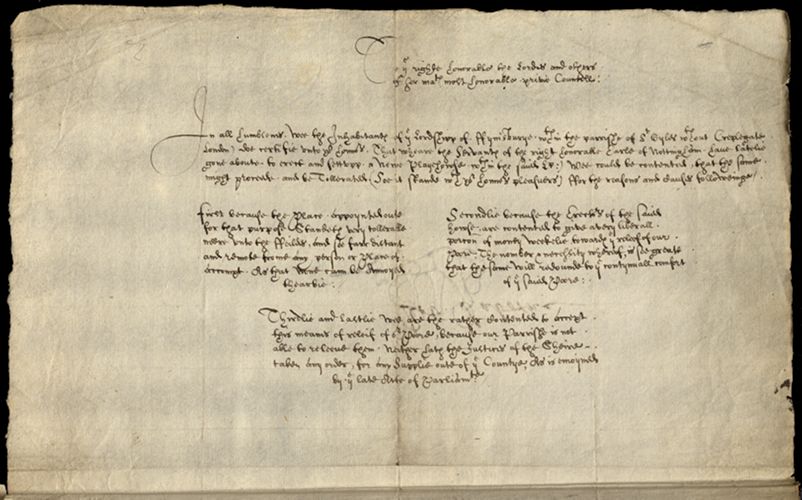 To yͤ righte honorable the Lordes and others
of her maᵗⁱᵉˢ most honorable privie Councell:
In all humblenes. Wee the Inhabitants of yͤ Lordshipp of ffynisburye wᵗʰin the parrishe of Sᵗ Gyles wᵗʰout Creplegate
London; doe certifie unto yoʳ honnoʳˢ. That wheare the Servants of the right honorable Earle of Nottingham have latelie
gone aboute to erect and sett upp a Newe Playehowse wᵗʰin the said Lp: Wee could be contented, that the same
might proceede and be Tollerated (Soe it stande wᵗʰ yoʳ honnoʳˢ pleasures) ffor the reasons and Causes followeinge.
First because the Place appoynted oute
for that purpose Standeth very tollerable
neere unto the ffeildes, and soe farr distant
and remote frome any person or Place of
accompt As that None cann be Annoyed
thearbie:
Secondlie because the Erectors of the saied
howse are contented to give a very liberall
porcon of money weekelie towards yͤ releef of our
Poore, The number & necessity whereof, is soe greate
that the same will redounde to yͤ contynuall comfort
of yͤ saied Poore:
Thirdlie and lastlie Wee are the rather Contented to accept
this meanes of releif of oʳ Poore, because our Parrishe is not
able to releeve them. Neither hath the Justices of the Sheire
taken any order, for any Supplie oute of yͤ Countye, As is enioyned
by yͤ late Acte of Parliamᵗᵉ: